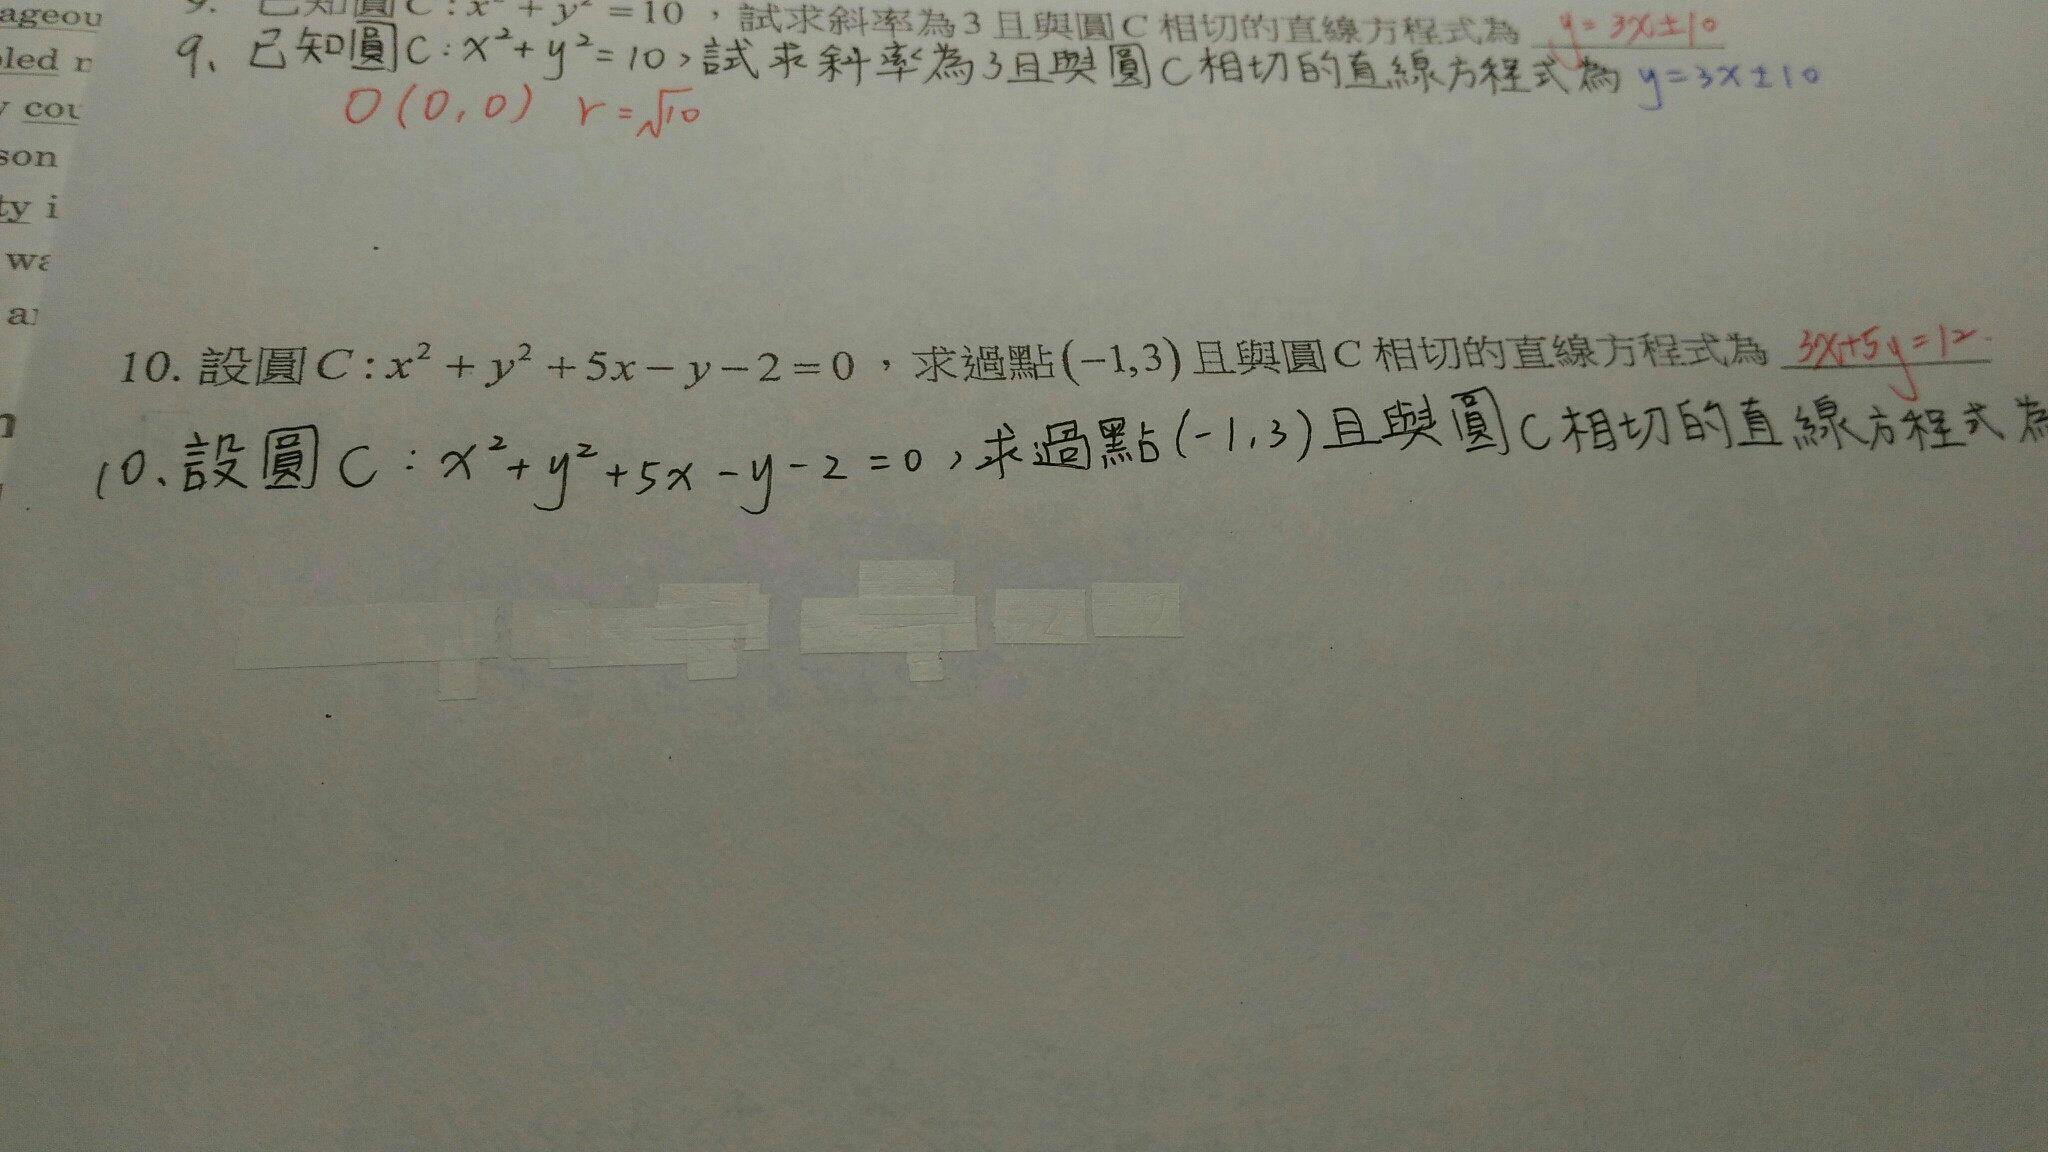 ageou
led r
cou
son
ty i
wa
a
9. 已知圓C:x²+y²=10,試求斜率為3且與圓C相切的直線方程式為 y=3x±10
9. 已知圓C:x²+y²=10,試求斜率為3且與圓C相切的直線方程式為 y=3x±10
O(0,0) r=√10
10. 設圓C:x²+y²+5x-y-2=0,求過點(-1,3)且與圓C相切的直線方程式為 3x+5y=12.
10. 設圓C:x²+y²+5x-y-2=0,求過點(-1,3)且與圓C相切的直線方程式為